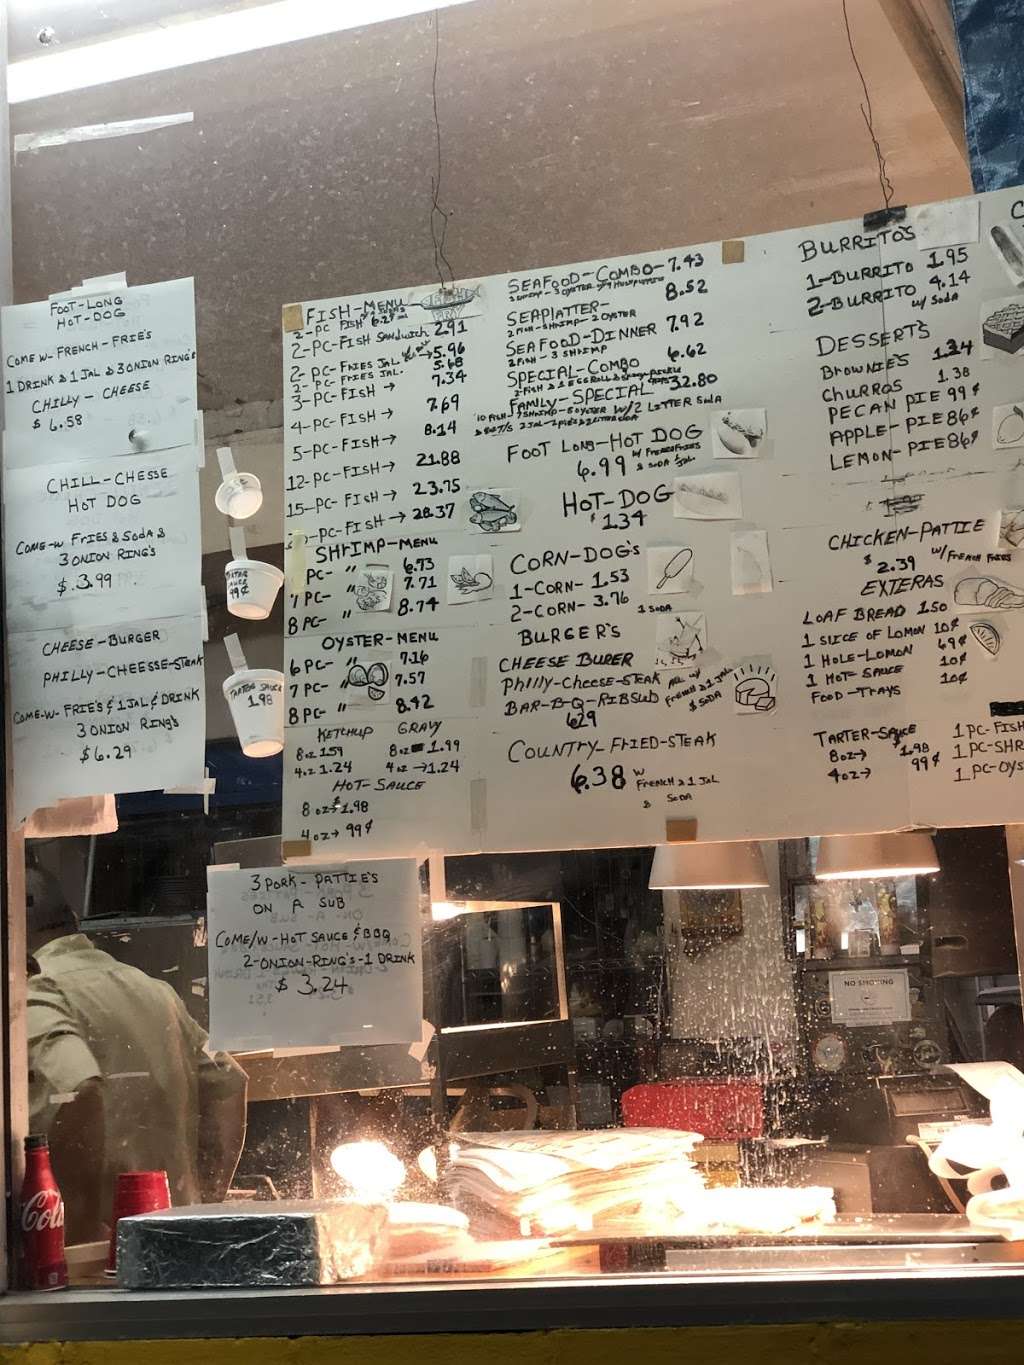 FOOT-LONG
HOT-DOG
COME W-FRENCH-FRIE'S
1 DRINK & 1 JAL & 3 ONION RING'S
CHILLY - CHEESE
$ 6.58
CHILL-CHESSE
HOT DOG
COME-W FRIES & SODA &
3 ONION RING'S
$.3.99
CHEESE-BURGER
PHILLY-CHEESSE-STEAK
COME-W-FRIE'S & 1 JAL & DRINK
3 ONION RING'S
$6.29
TARTAR SAUCE 99¢
TARTER SAUCE
1.98
FISH-MENU
FISH FRY
2-PC FISH 6.29
2-PC-FISH SANDWICH 2.91
2-PC-FRIES JAL. → 5.96
2-PC-FRIES JAL. 5.68
3-PC-FISH → 7.34
4-PC-FISH → 7.69
5-PC-FISH → 8.14
12-PC-FISH → 21.88
15-PC-FISH → 23.75
PC-FISH → 28.37
SHRIMP-MENU
PC- " 6.73
7 PC- " 7.71
8 PC " 8.74
OYSTER-MENU
6 PC- " 7.16
7 PC- " 7.57
8 PC- " 8.42
KETCHUP GRAVY
8oz 1.59 8oz 1.99
4oz 1.24 4oz → 1.24
HOT-SAUCE
8 oz → $1.98
4 oz → 99¢
SEAFOOD-COMBO- 7.43
3 SHRIMP - 3 OYSTER W/4 HUSHPUPPIES
SEAPLATTER- 8.52
2 FISH-SHRIMP-2 OYSTER
SEAFOOD-DINNER 7.92
2 FISH - 3 SHRIMP
SPECIAL-COMBO 6.62
FAMILY-SPECIAL 32.80
10 FISH 7 SHRIMP-5 OYSTER W/2 LITTER SODA
FOOT LONG-HOT DOG
6.99 W/ FRENCH FRIES
& SODA 1 JAL
HOT-DOG
$1.34
CORN-DOG'S
1-CORN- 1.53
2-CORN- 3.76 1 SODA
BURGER'S
CHEESE BURER
PHILLY-CHEESE-STEAK
BAR-B-Q-RIBSUB
ALL W/
FRENCH & 1 JAL
& SODA
6.29
COUNTRY-FRIED-STEAK
6.38 W
FRENCH & 1 JAL
& SODA
BURRITO'S
1-BURRITO 1.95
2-BURRITO 4.14
W/ SODA
DESSERT'S
BROWNIE'S 1.34
CHURROS 1.38
PECAN PIE 99¢
APPLE-PIE 86¢
LEMON-PIE 86¢
CHICKEN-PATTIE
$2.39 W/ FRENCH FRIES
EXTERAS
LOAF BREAD 1.50
1 SLICE OF LOMON 10¢
1 HOLE-LOMON 69¢
1 HOT-SAUCE 10¢
FOOD-TRAYS 10¢
TARTER-SAUCE
8oz → $1.98
4oz → 99¢
1 PC-FISH
1 PC-SHR
1 PC-OYS
3 PORK-PATTIE'S
ON A SUB
COME/W-HOT SAUCE & BBQ
2-ONION-RING'S-1 DRINK
$ 3.24
NO SMOKING
Coca